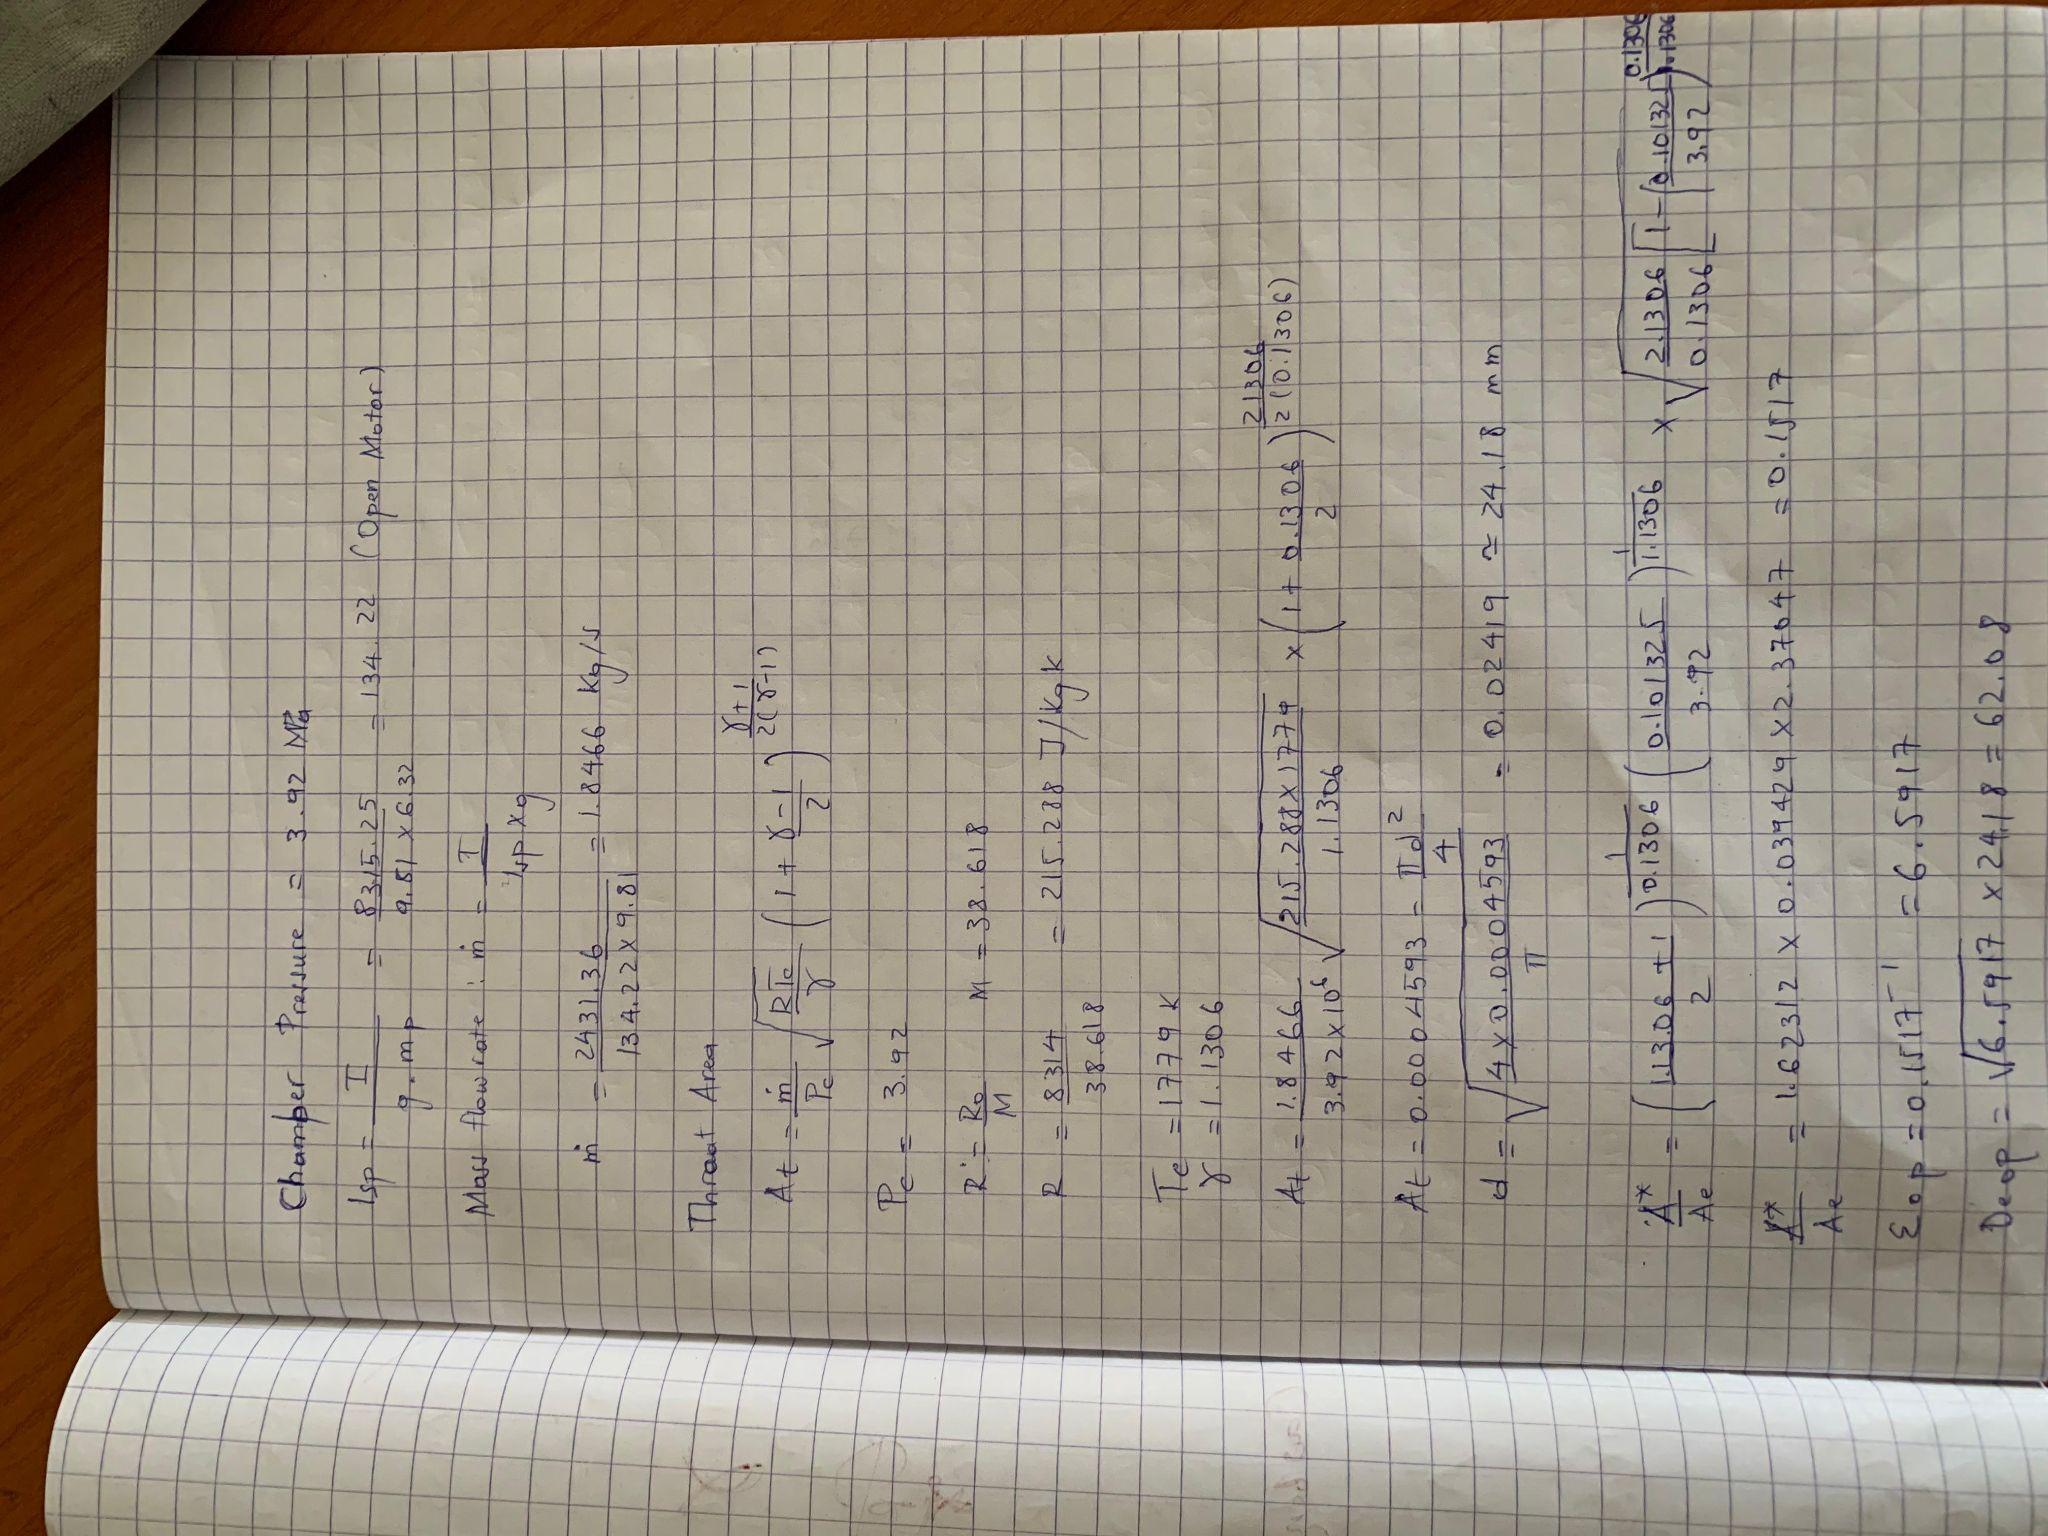 Champer Pressure = 3.92 MPa
Isp = I / g.mp = 8315.25 / 9.81 x 6.32 = 134.22 (Open Motor)
Mass flow rate : ṁ = I / Isp x g
ṁ = 2431.36 / 134.22 x 9.81 = 1.8466 Kg/s
Throat Area
At = ṁ/Pc √(RTc/γ) (1 + (γ-1)/2)^((γ+1)/(2(γ-1)))
Pc = 3.92
R = Ro/M M = 38.618
R = 8314/38.618 = 215.288 J/KgK
Tc = 1779 K
γ = 1.1306
At = 1.8466 / 3.92x10⁶ √(215.288x1779 / 1.1306) x (1 + 0.1306/2)^(2.1306/(2(0.1306)))
At = 0.0004593 = πd²/4
d = √(4x0.0004593/π) = 0.02419 ≃ 24.18 mm
A*/Ae = ((1.1306+1)/2)^(1/0.1306) (0.101325/3.92)^(1/1.1306) x √(2.1306/0.1306 [1-(0.101325/3.92)^(0.1306/1.1306)
A*/Ae = 1.622312 x 0.039424 x 2.37047 = 0.1517
Ɛop = 0.1517⁻¹ = 6.5917
Deop = √6.5917 x 24.18 = 62.08